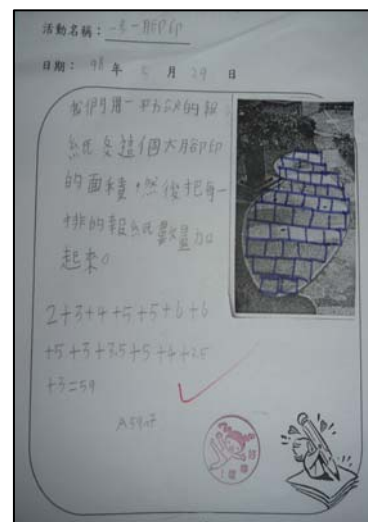 活動名稱：一步一腳印
日期：98 年 5 月 29 日
我們用一平方公尺的報
紙來這個大腳印
的面積，然後把每一
排的報紙數量加
起來。
2+3+4+5+5+6+6
+5+3+3.5+5+4+2.5
+3=59
A59